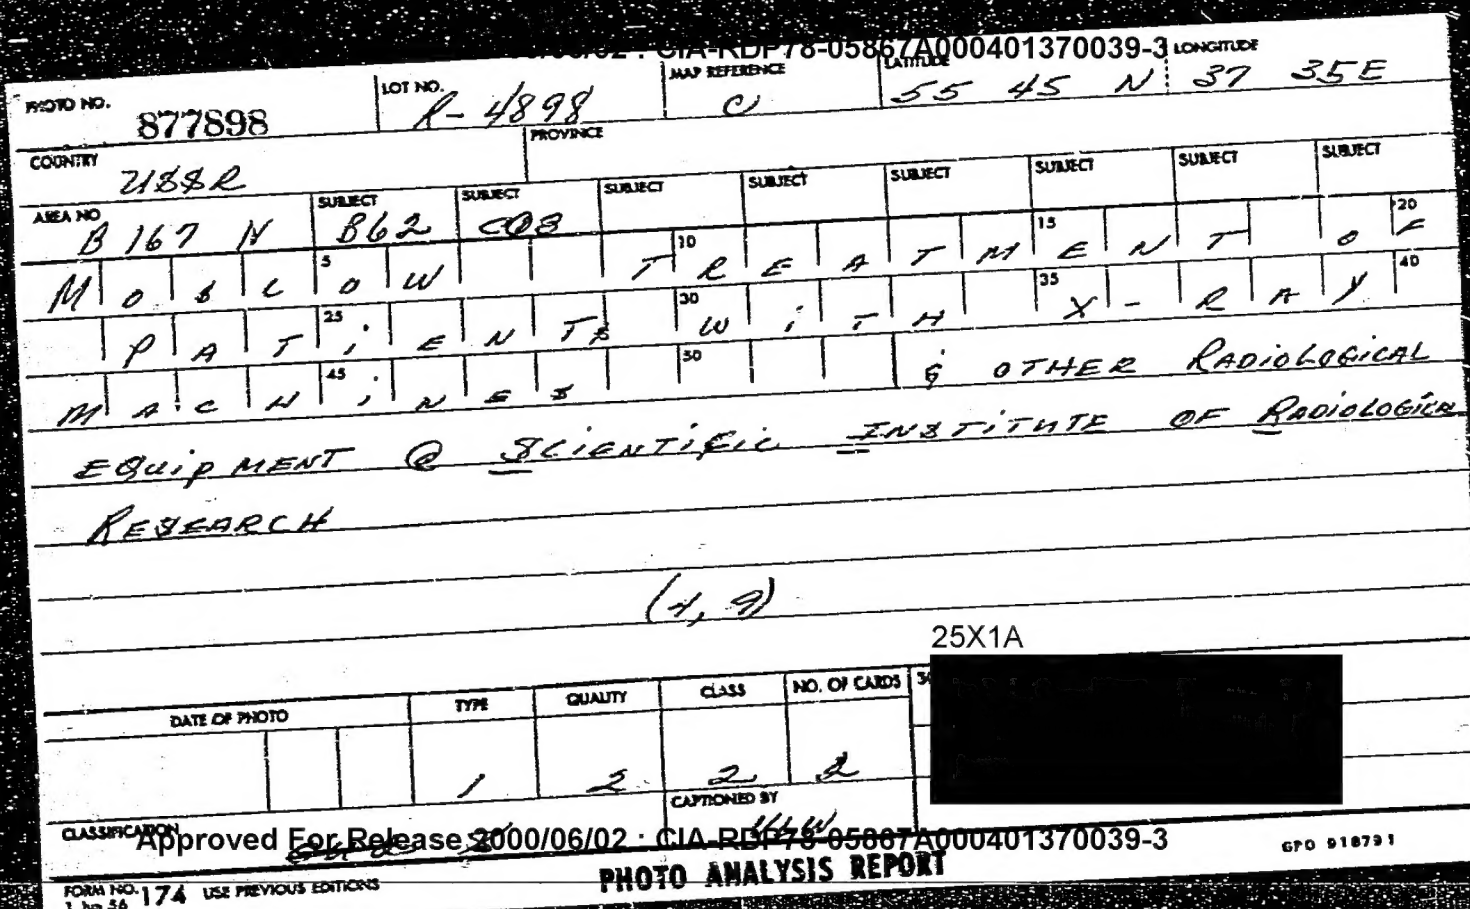 : CIA-RDP78-05867A000401370039-3
PHOTO NO. 877898 LOT NO. R-4898 MAP REFERENCE C LATITUDE 55 45 N LONGITUDE 37 35E
COUNTRY USSR PROVINCE
AREA NO B 167 N SUBJECT B62 SUBJECT C03 SUBJECT SUBJECT SUBJECT SUBJECT SUBJECT SUBJECT
MOSCOW 5 TREATMENT OF 10 15 20
PATIENTS 25 WITH 30 X-RAY 35 40
MACHINES 45 50 & OTHER RADIOLOGICAL
EQUIPMENT @ SCIENTIFIC INSTITUTE OF RADIOLOGICAL
RESEARCH
(4, 9)
25X1A
DATE OF PHOTO TYPE QUALITY CLASS NO. OF CARDS
1 2 2 2
CAPTIONED BY
CLASSIFICATION
Approved For Release 2000/06/02 : CIA-RDP78-05867A000401370039-3
GPO 918791
FORM NO. 174 USE PREVIOUS EDITIONS PHOTO ANALYSIS REPORT